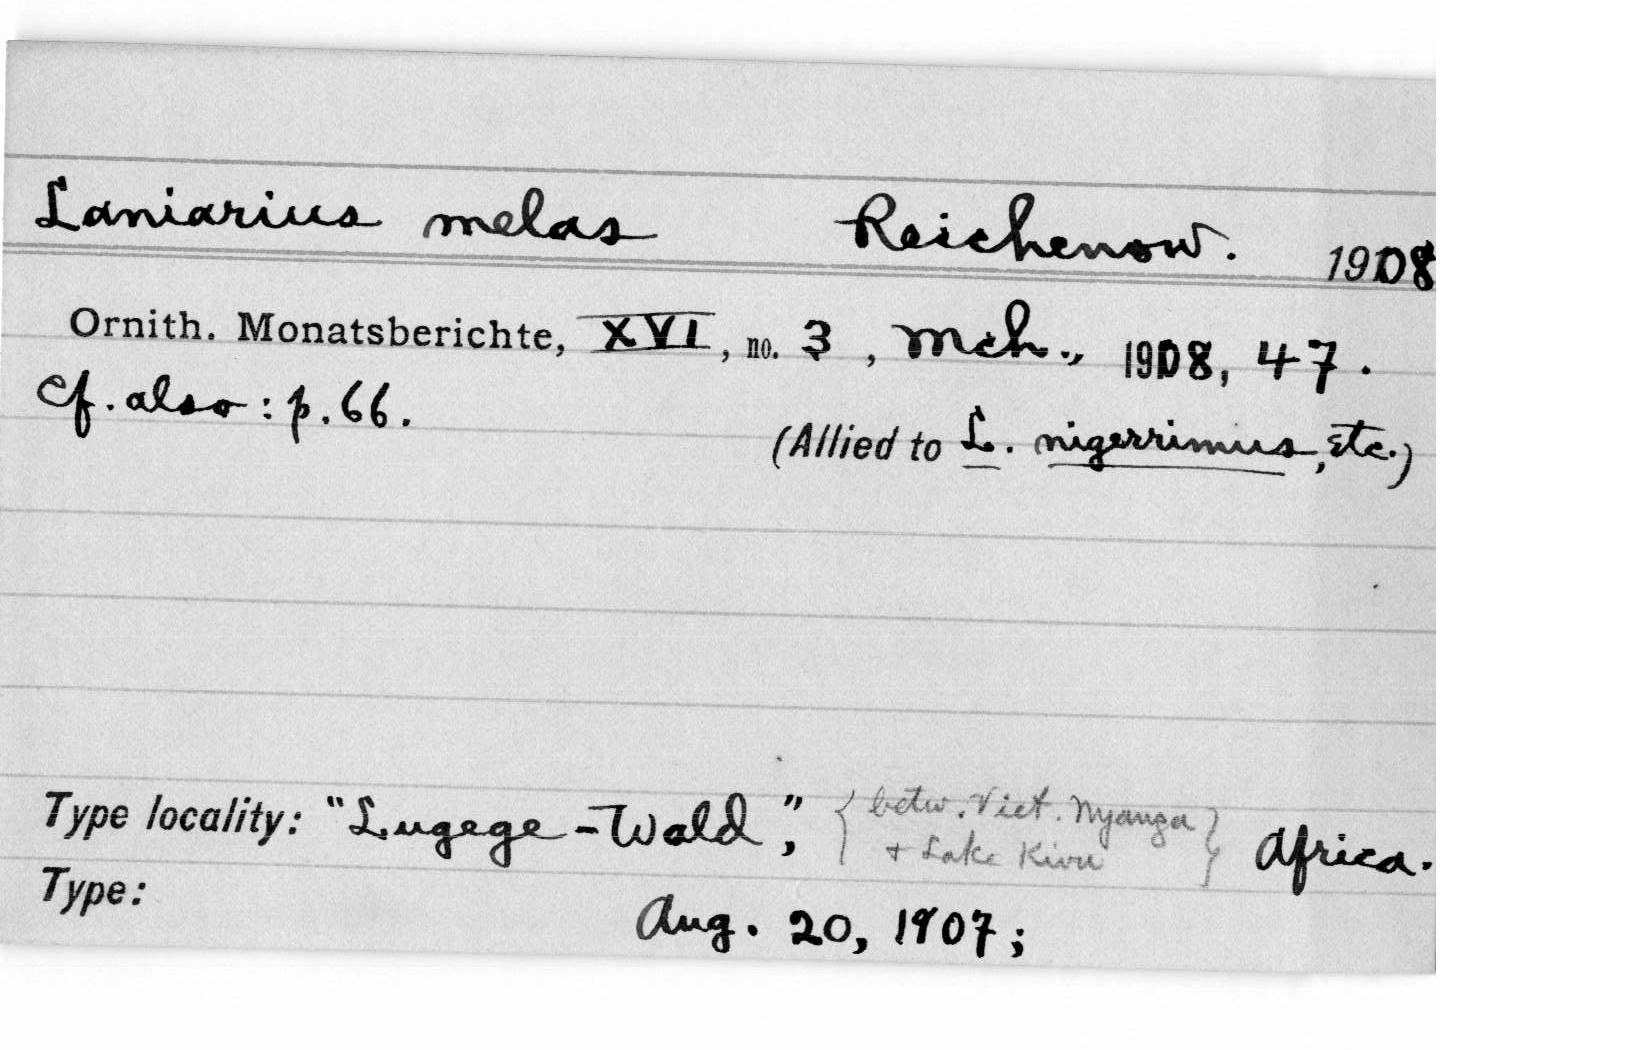 Laniarius melas Reichenow. 1908
Ornith. Monatsberichte, XVI, no. 3, Mch., 1908, 47.
Cf. also: p. 66.
(Allied to L. nigerrimus, etc.)
Type locality: "Lugege-Wald," {betw. Vict. Nyanza & Lake Kivu} Africa.
Type: Aug. 20, 1907;